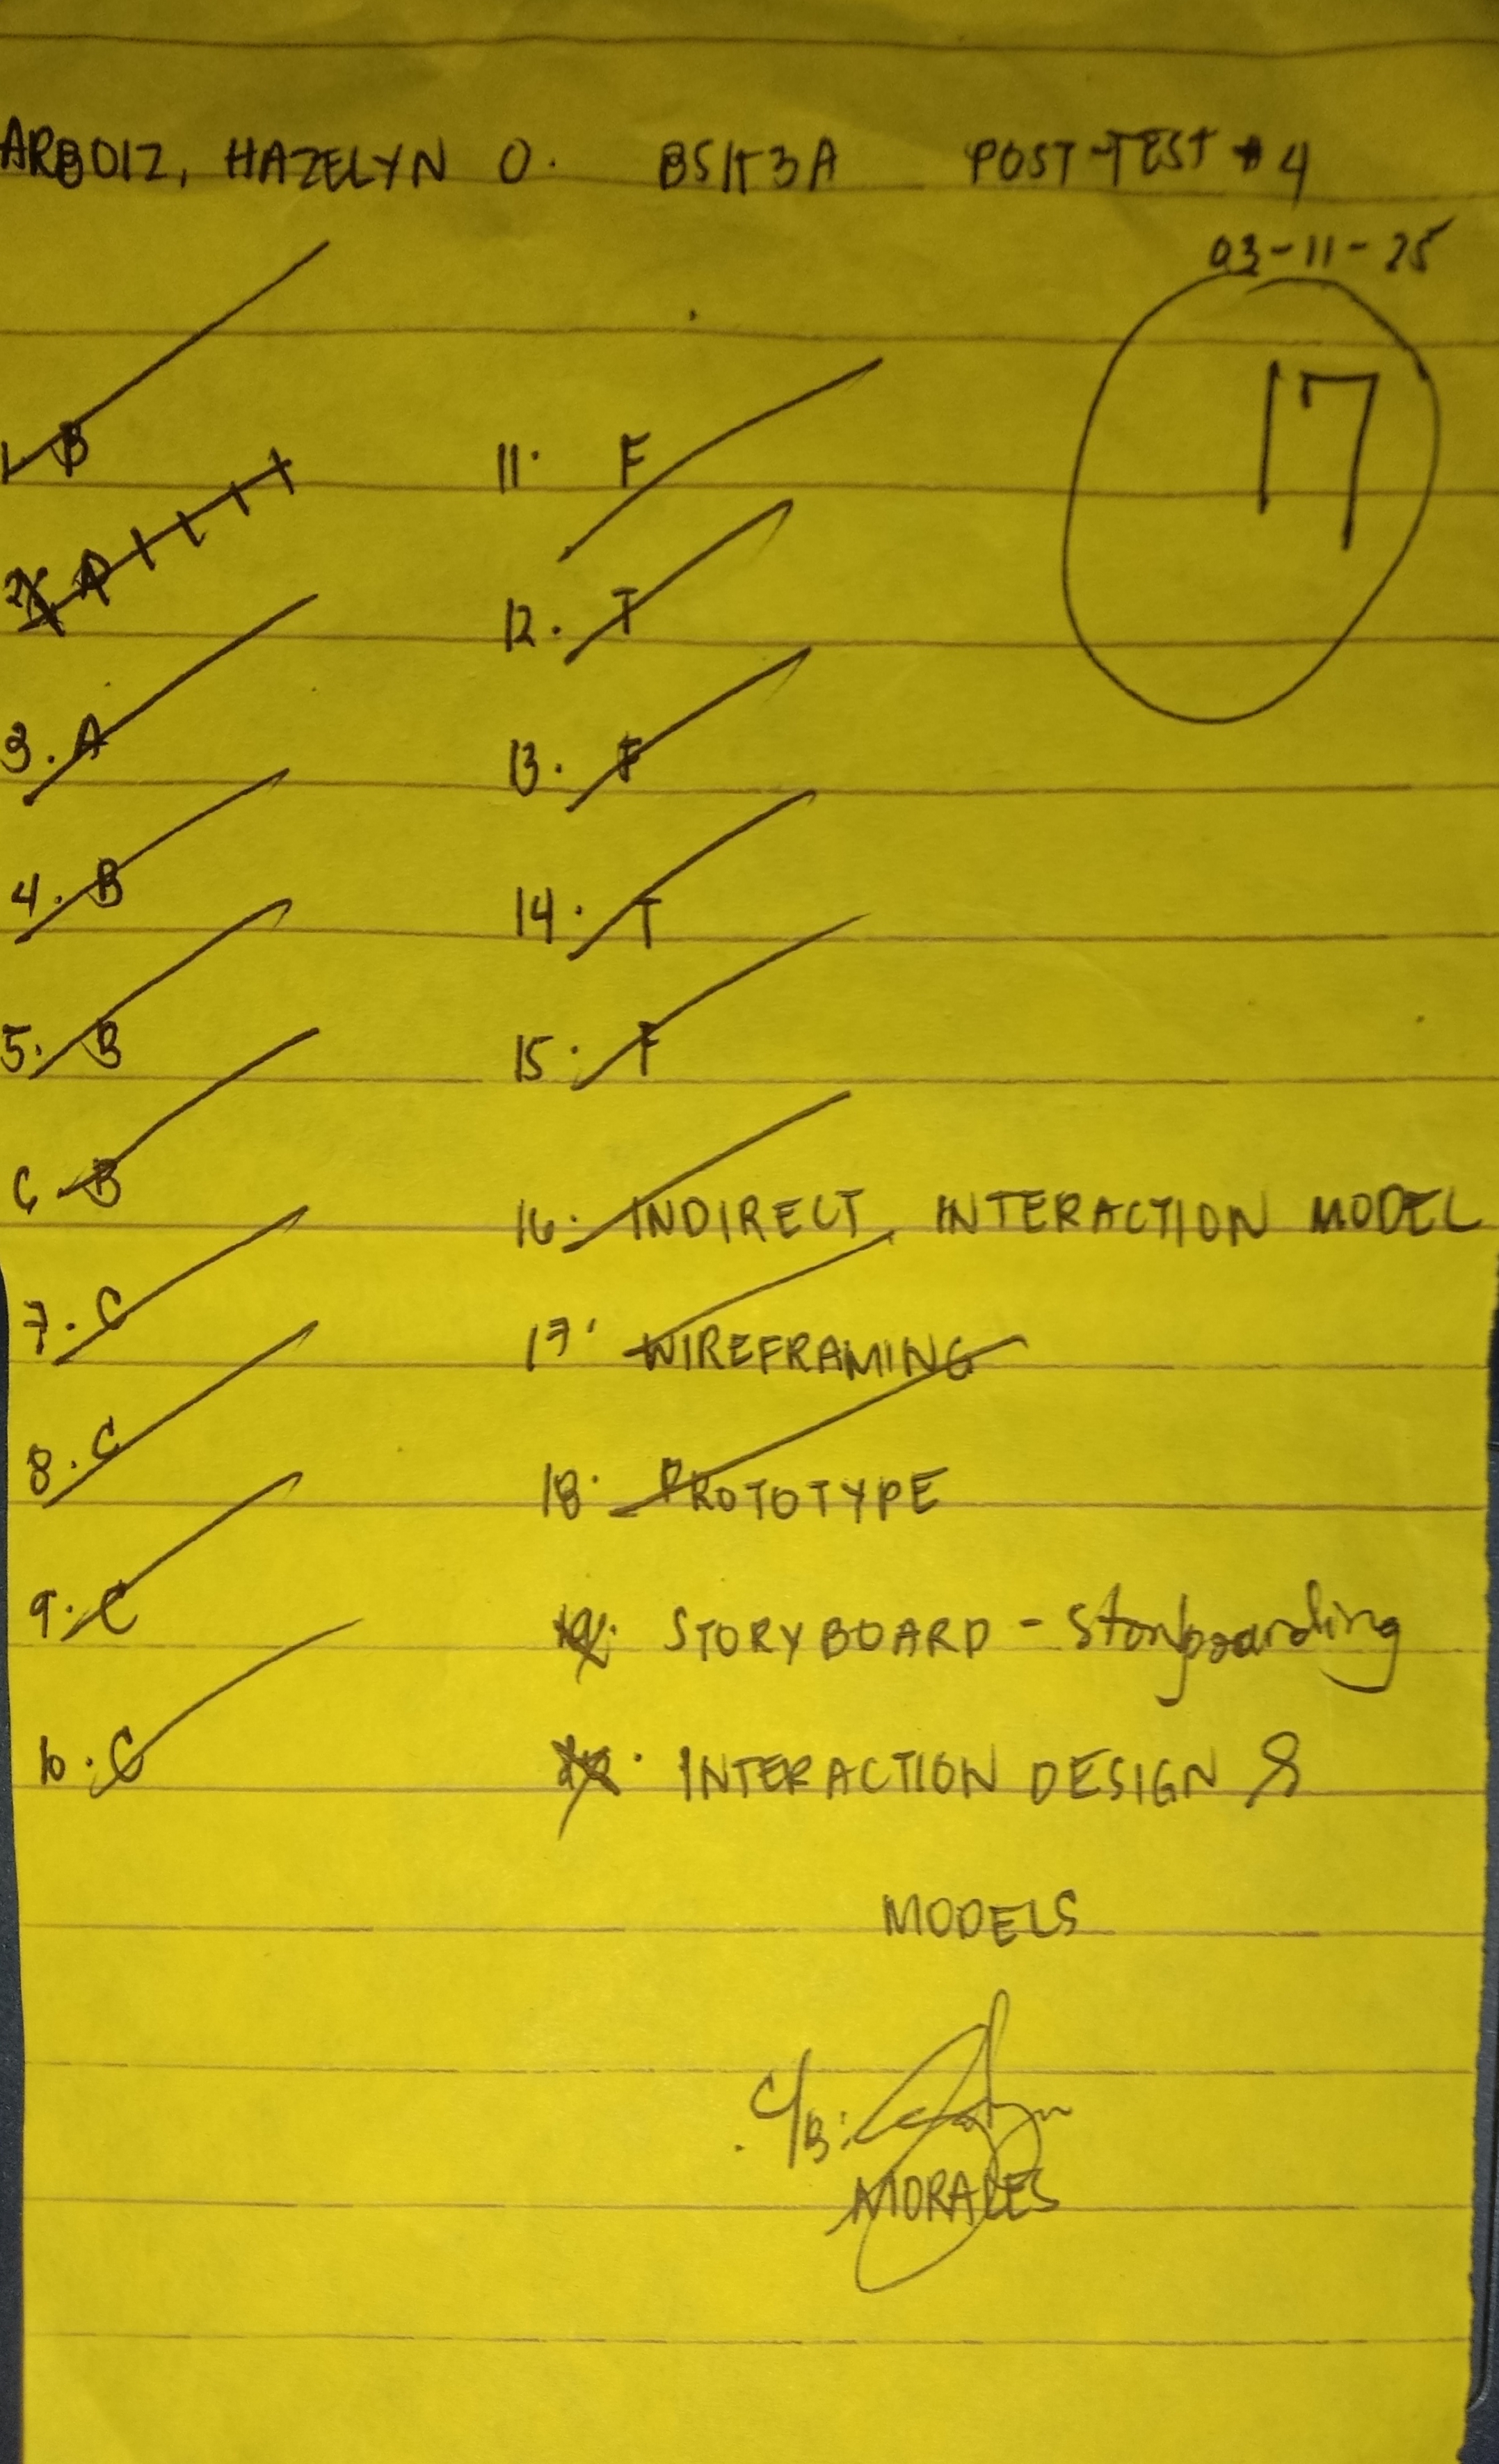 ARBOIZ, HAZELYN O. BSIT3A POST-TEST # 4
03-11-25
17
1. B
2. A
3. A
4. B
5. B
6. B
7. C
8. C
9. C
10. C
11. F
12. T
13. F
14. T
15. F
16. INDIRECT INTERACTION MODEL
17. WIREFRAMING
18. PROTOTYPE
19. STORYBOARD - Storyboarding
20. INTERACTION DESIGN &
MODELS
C/B:
MORALES